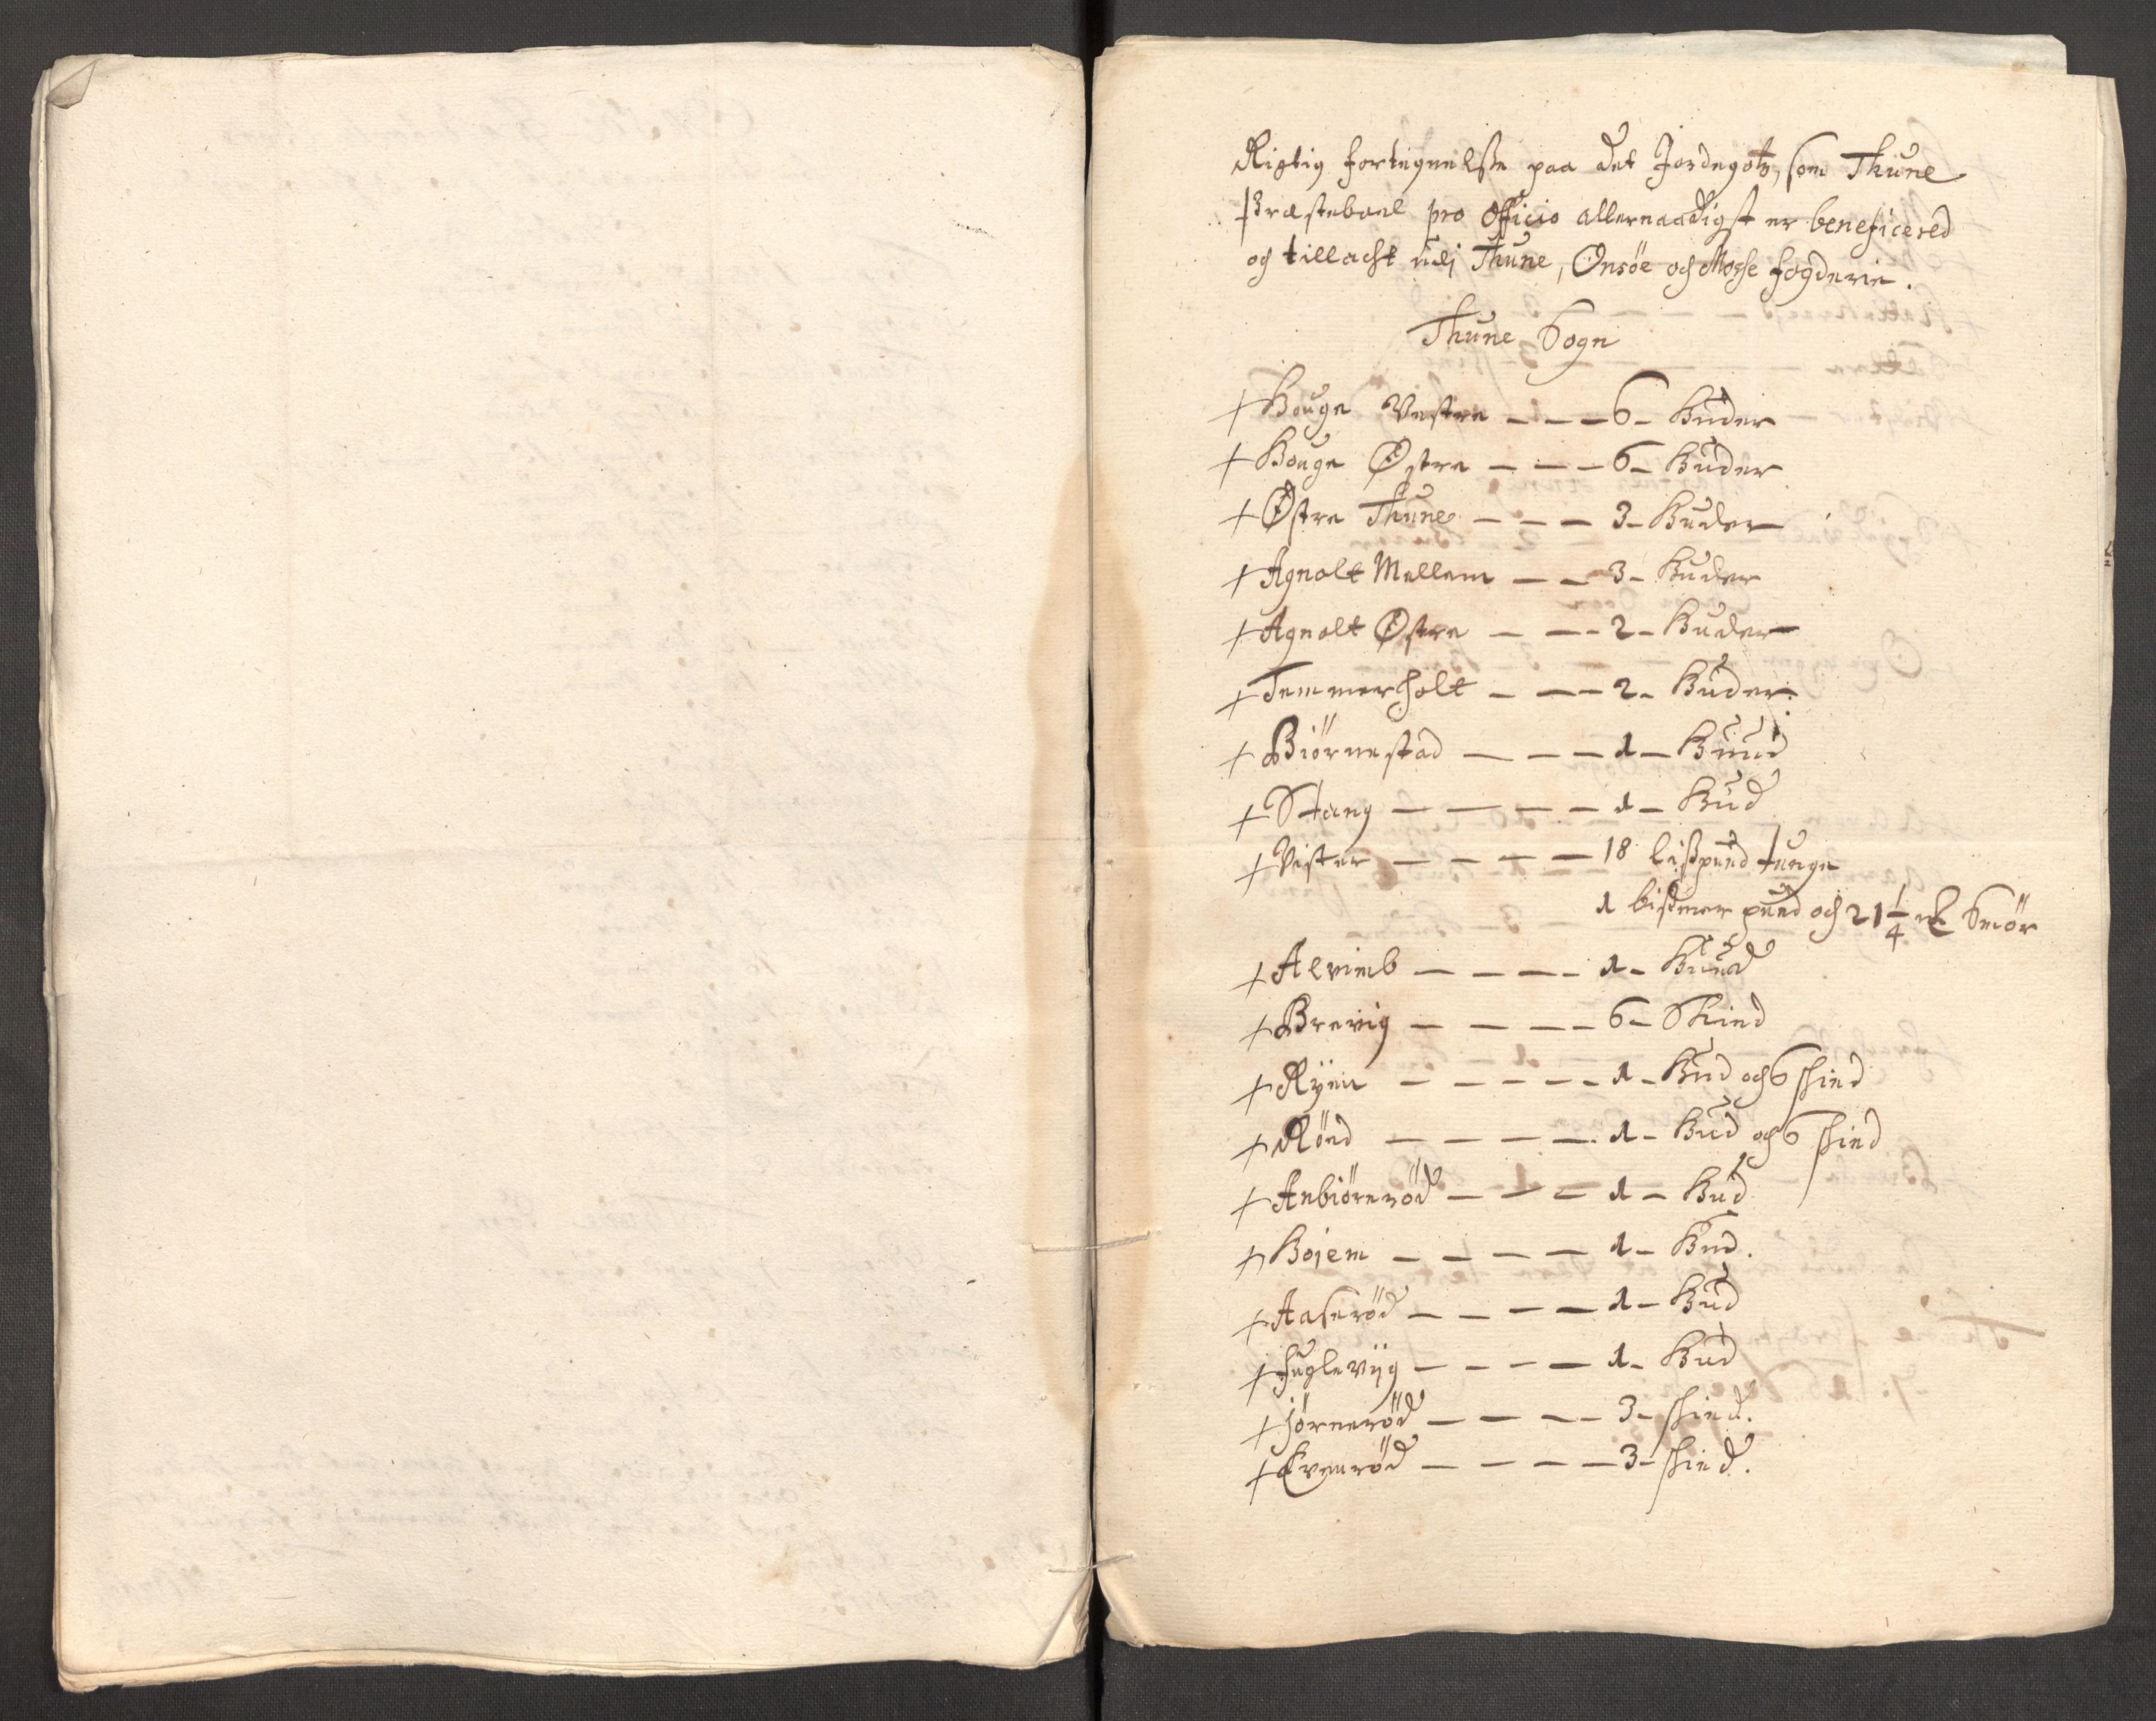 Rigtig fortegnelsse paa det Jordegotz, som Thune
Præsteboel pro Officio allernaadigst er beneficered
og tillacht udi Thune, Onsøe och Mosse fogderie.
Thune Sogn
+ Houge Vestre - - - 6 - Huder
+ Houge Østre - - - 6 - Huder
+ Østre Thune - - - 3 - Huder
+ Agnalt Mellem - - 3 - Huder
+ Agnalt Østre - - - 2 - Huder
+ Temmerholt - - - 2 - Huder
+ Biørnestad - - - 1 - Huud
+ Stang - - - - - 1 - Hud
+ Vister - - - - 18 lispund tunge
1 bismer pund och 21 1/4 ℔ Smør
+ Alvimb - - - - 1 - Huud
+ Brevig - - - - 6 - Skind
+ Ryen - - - - - 1 - Hud och 6 skind
+ Rönd - - - - - 1 - Hud och 6 skind
+ Anbiörneröd - - - 1 - Hud
+ Bojem - - - - 1 - Hud.
+ Aaseröd - - - - 1 - Hud
+ Fuglevijg - - - - 1 - Hud
+ jörneröd - - - - 3 - skind.
+ Evenröd - - - - 3 - skind.